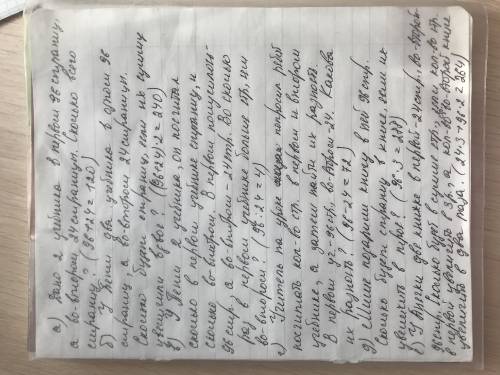 а) Дано 2 учебника в первом 96 страниц,
а во-втором 24 страницы. Сколько всего
страниц? (96+24=120)
б) У Тани два учебника в одном 96
страниц а во-втором 24 страницы.
Сколько будет страниц, если их сумму
увеличить вдвое? (96+24)·2=240)
в) У Пети 2 учебника. он посчитал
сколько в первом учебнике страниц, и
сколько во-втором. В первом получилось
96 стр. а во-втором - 24 стр. Во сколько
раз в первом учебнике больше стр. чем
во-втором? (96:24=4)
г) Учитель на уроке попросил ребят
посчитать кол-во стр. в первом и втором
учебнике, а затем найти их разность.
В первом уч - 96 стр, во-втором - 24. Какова
их разность? (96-24=72)
д) Мише подарили книгу в ней 96 стр.
Сколько будет страниц в книге если их
увеличить в три раза? (96·3=288)
е) У Ани две книжки в первой - 24 стр., во-второй -
96 стр. Сколько будет в сумме стр. если кол-во стр.
в первой увеличить в 3 р. а кол-во во-второй книге
увеличить в два раза? (24·3+96·2=264)